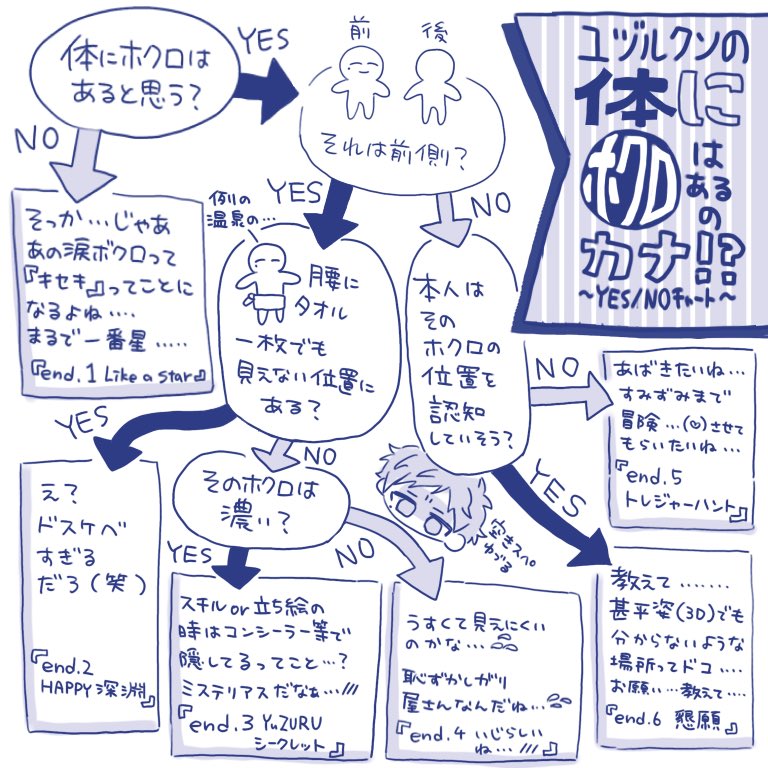 ユヅルクンの
体に
ホクロ
はあるの
カナ!?
～YES/NOチャート～
体にホクロは
あると思う？
YES
NO
前
後
それは前側？
YES
NO
そっか…じゃあ
あの涙ボクロって
『キセキ』ってことに
なるよね‥‥
まるで一番星……
『end.1 Like a star』
例の
温泉の…
腰に
タオル
一枚でも
見えない位置に
ある？
YES
NO
本人は
その
ホクロの
位置を
認知
していそう？
NO
YES
あばきたいね…
すみずみまで
冒険…(♡)させて
もらいたいね…
『end.5
トレジャーハント』
え？
ドスケベ
すぎる
だろ(笑)
『end.2
HAPPY深淵』
そのホクロは
濃い？
YES
NO
空きスペ
ゆづる
スチルor立ち絵の
時はコンシーラー等で
隠してるってこと…？
ミステリアスだなぁ…///
『end.3 YUZURU
シークレット』
うすくて見えにくい
のかな…
恥ずかしがり
屋さんなんだね…
『end.4 いじらしい
ね…///』
教えて……
甚平姿(3D)でも
分からないような
場所ってドコ‥‥
お願い…教えて‥‥
『end.6 懇願』